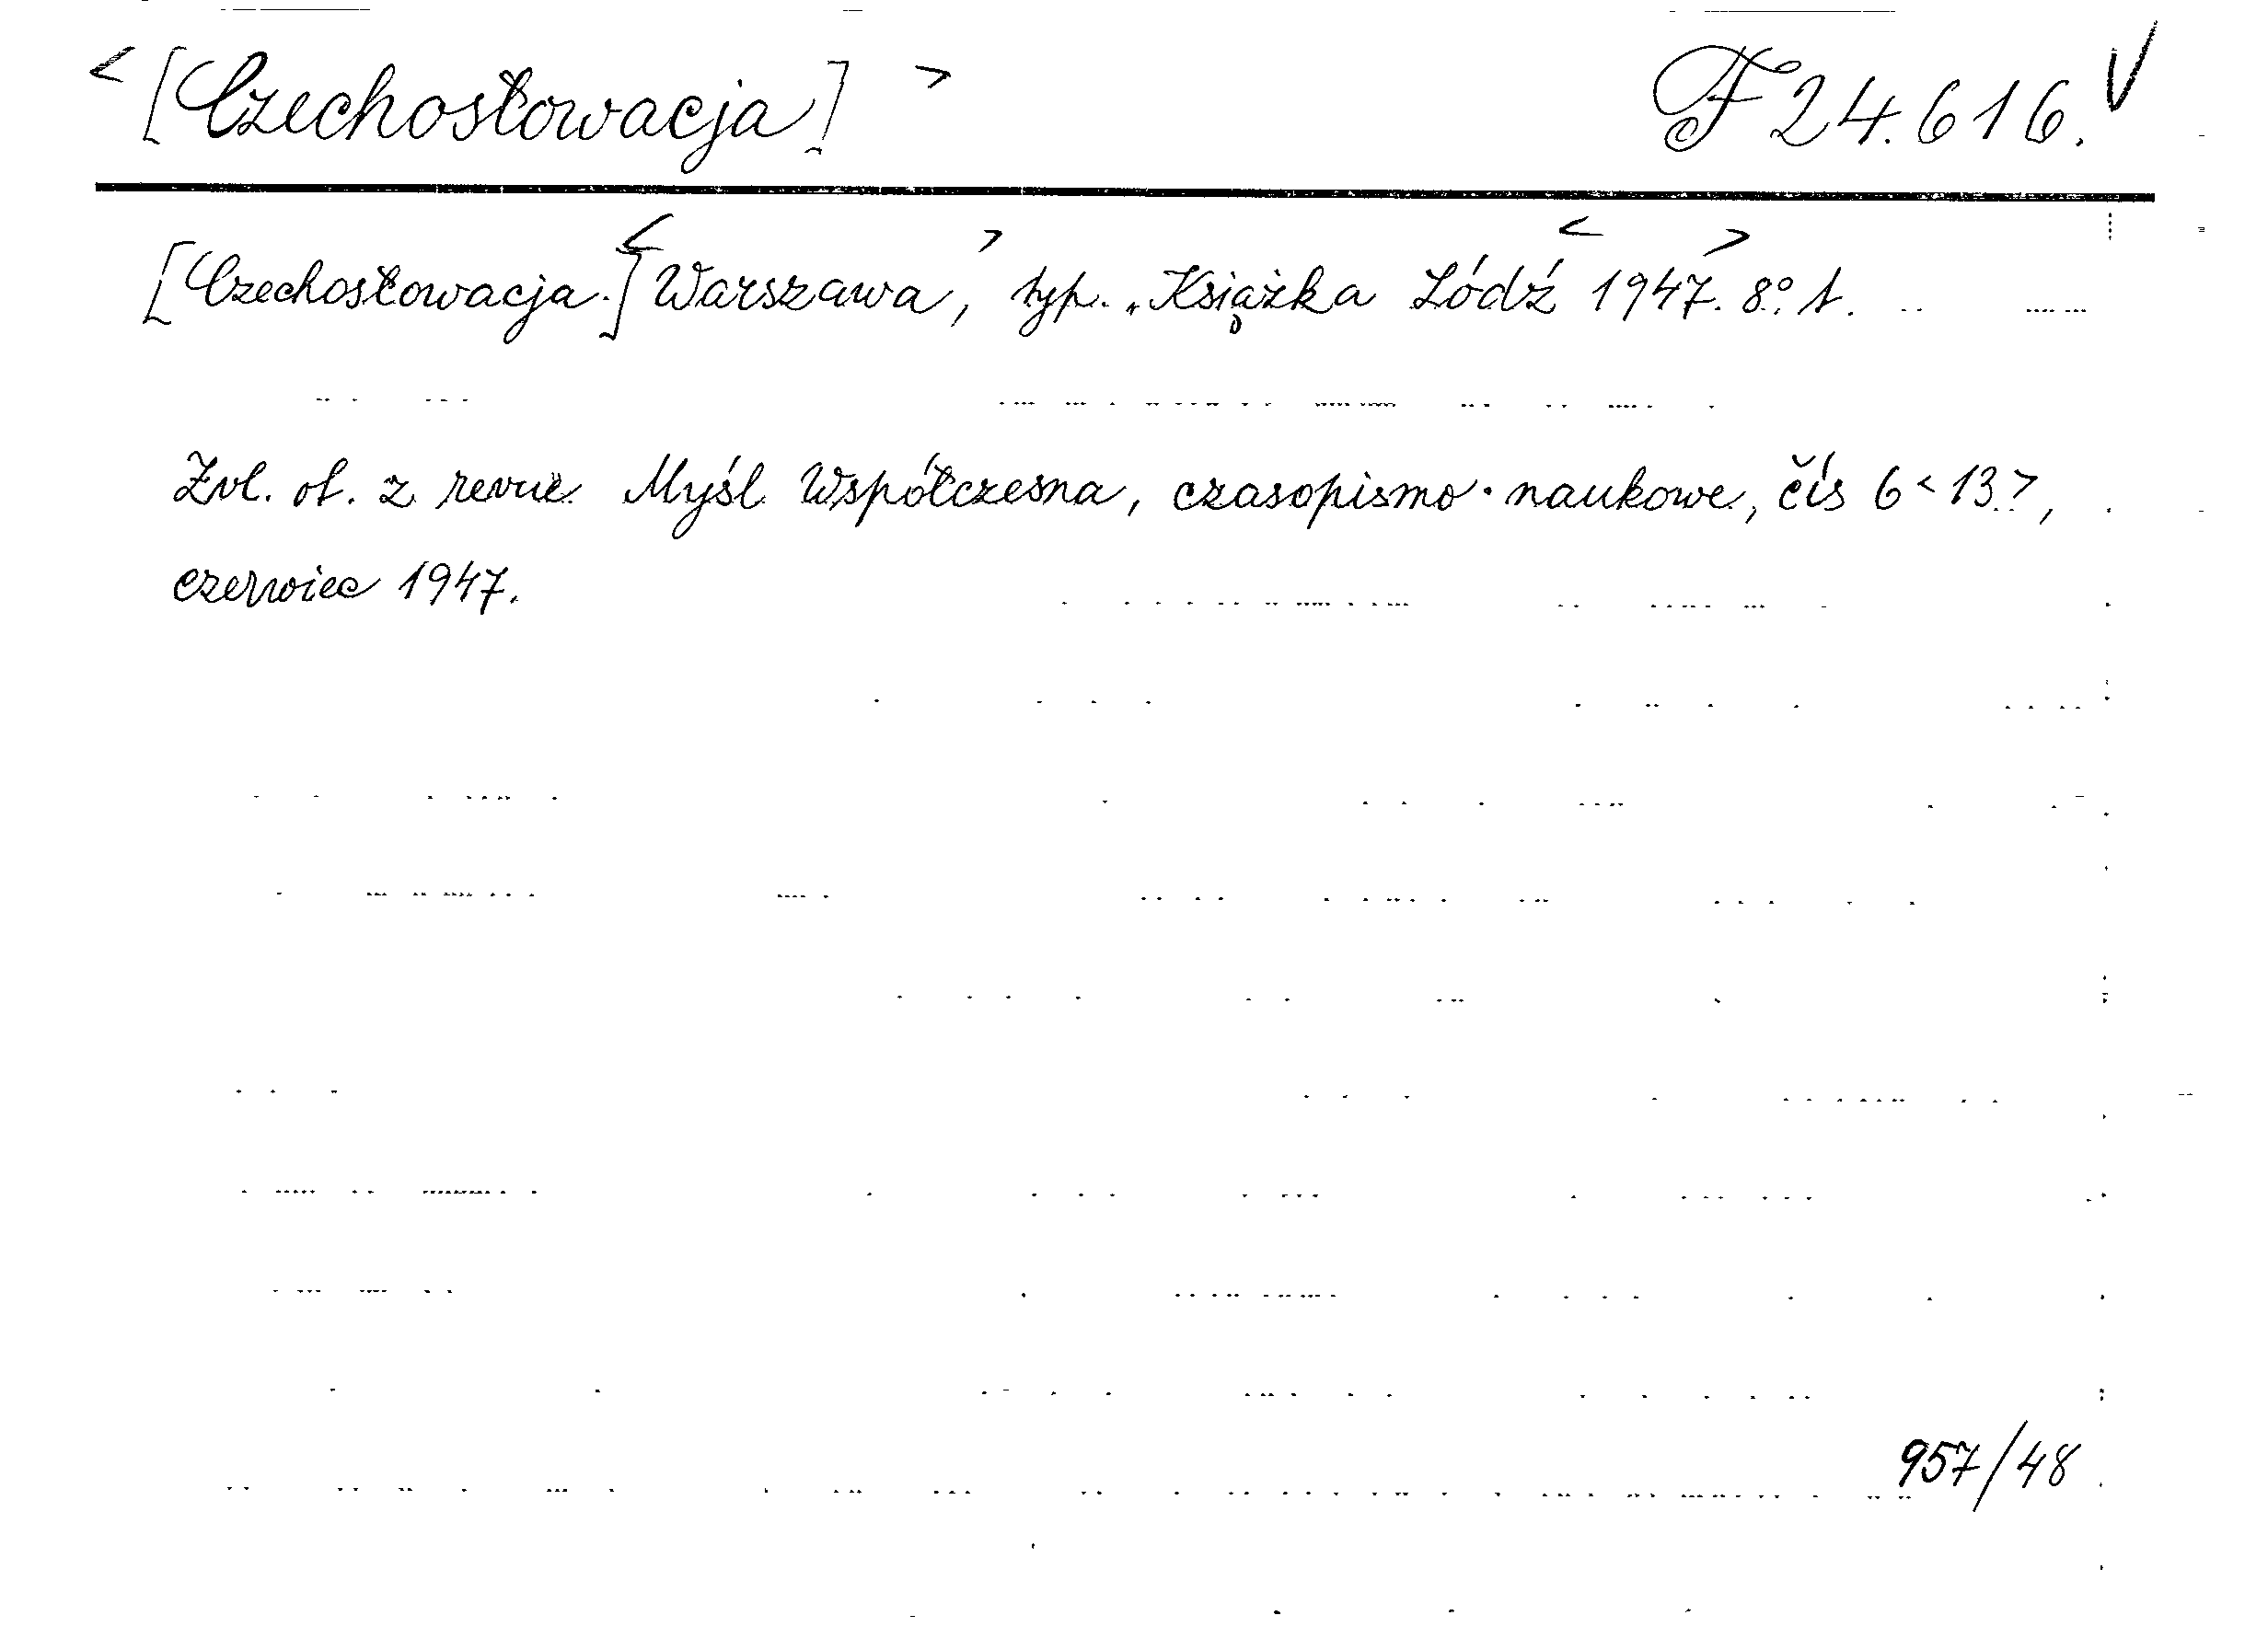 < [Czechosłowacja] > F 24.616. V
[Czechosłowacja.] < Warszawa, > typ. „Książka Łódź < 1947. > 8°. 1.
Zvl. ot. z revue Myśl Współczesna, czasopismo naukowe, čís 6 < 13. >,
czerwiec 1947.
957/48